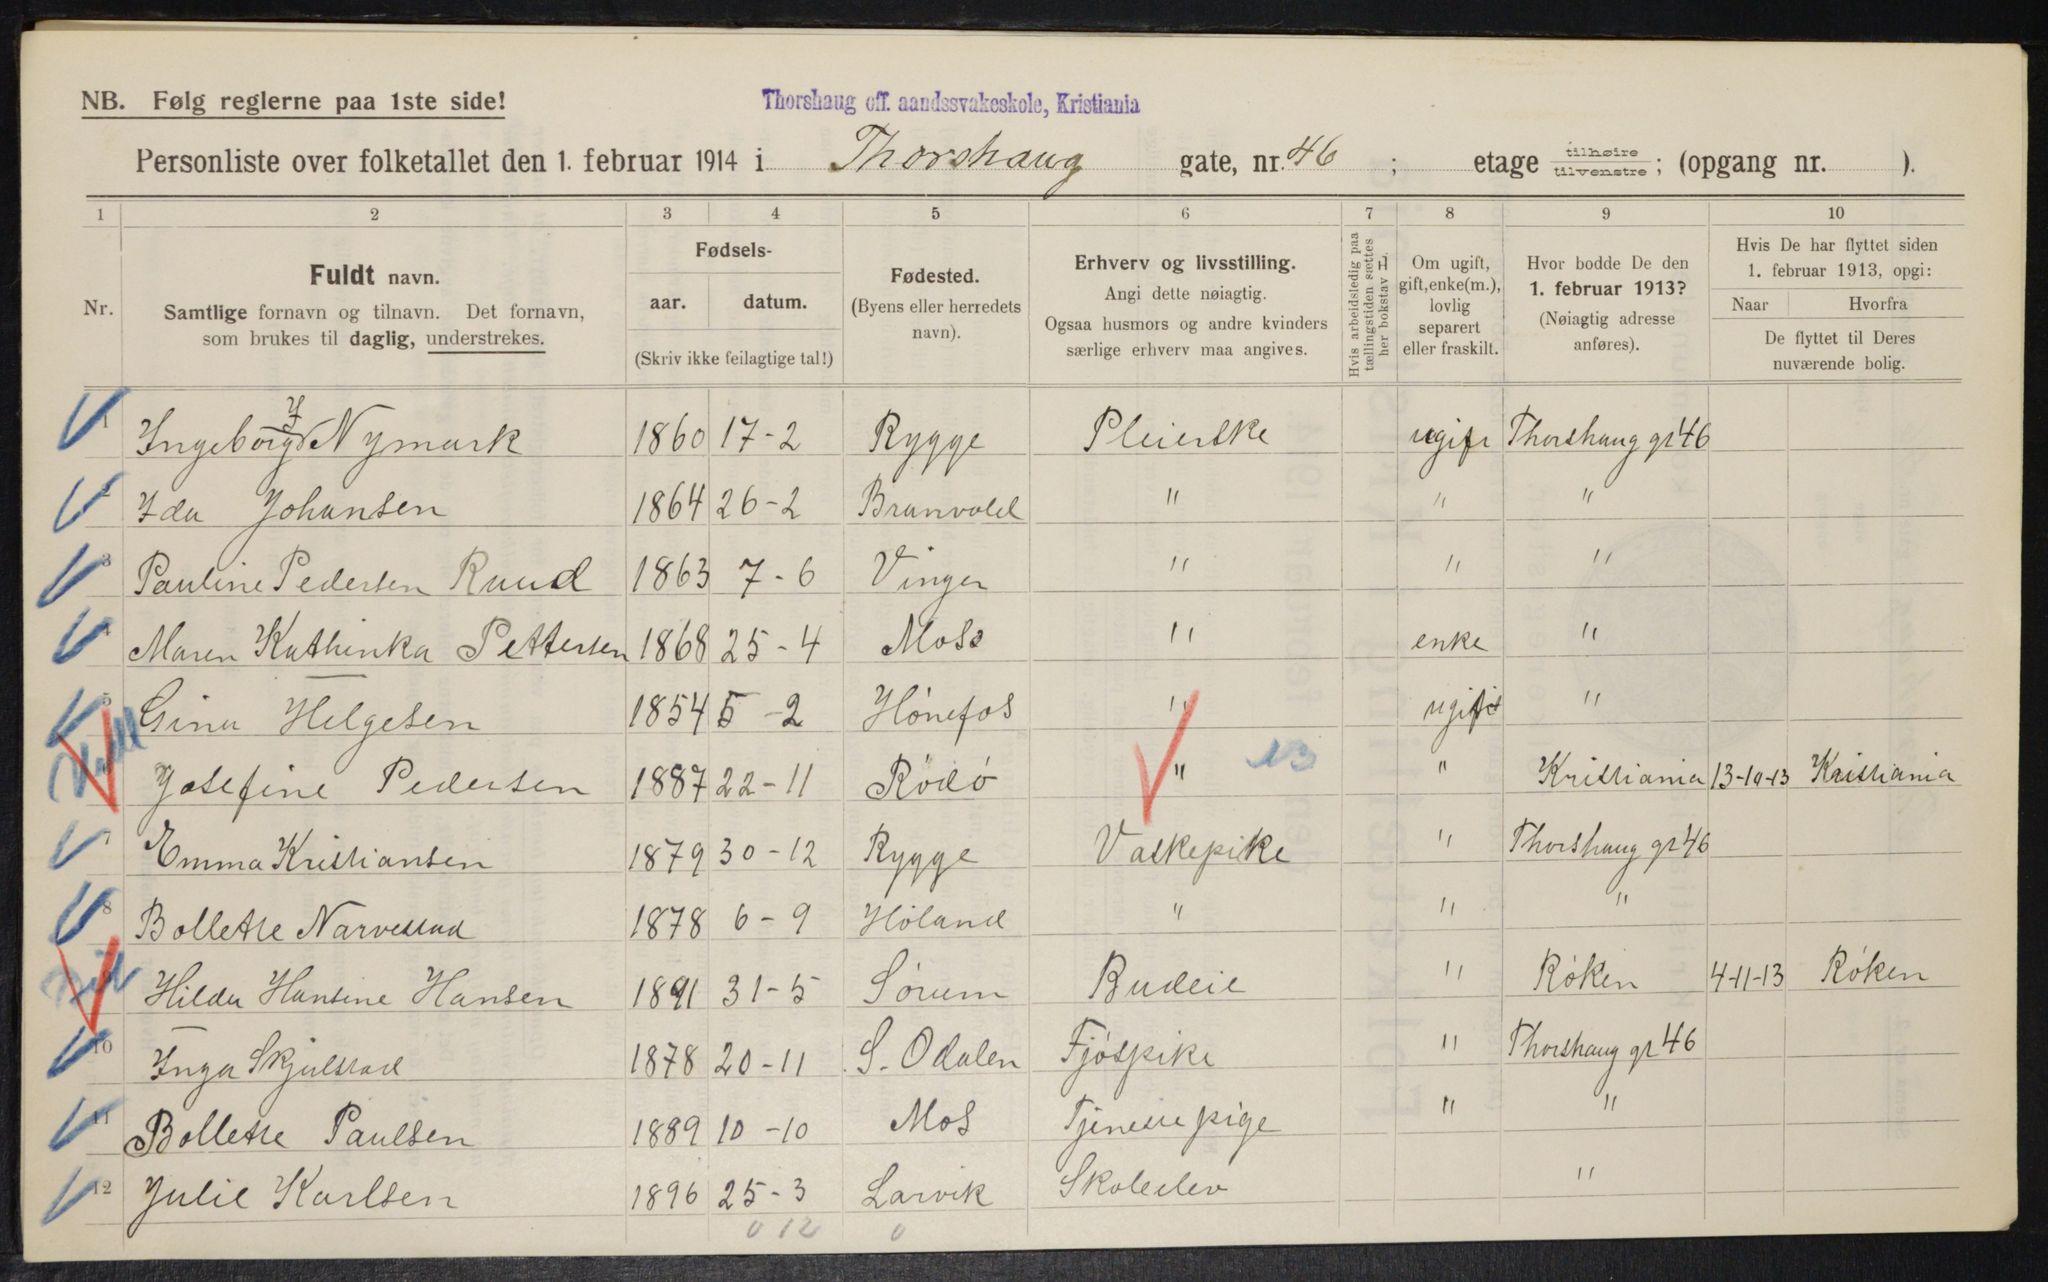 NB. Følg reglerne paa 1ste side!
Thorshaug off. aandssvakeskole, Kristiania
Personliste over folketallet den 1. februar 1914 i Thorshaug gate, nr. 46 ; etage tilhøire tilvenstre ; (opgang nr. ).
1 2 3 4 5 6 7 8 9 10
Nr.
Fuldt navn.
Samtlige fornavn og tilnavn. Det fornavn,
som brukes til daglig, understrekes.
Fødsels-
aar. datum.
(Skriv ikke feilagtige tal!)
Fødested.
(Byens eller herredets
navn).
Erhverv og livsstilling.
Angi dette nøiagtig.
Ogsaa husmors og andre kvinders
særlige erhverv maa angives.
Hvis arbeidsledig paa
tællingstiden sættes
her bokstav L.
Om ugift,
gift, enke(m.),
lovlig
separert
eller fraskilt.
Hvor bodde De den
1. februar 1913?
(Nøiagtig adresse
anføres).
Hvis De har flyttet siden
1. februar 1913, opgi:
Naar Hvorfra
De flyttet til Deres
nuværende bolig.
1 Ingeborg Nymark 1860 17-2 Rygge Pleierske ugift Thorshaug gt 46
2 Ida Johansen 1864 26-2 Branvold " " "
3 Pauline Pedersen Ruud 1863 7-6 Vinger " " "
4 Maren Kathinka Pettersen 1868 25-4 Moss " enke "
5 Gina Helgesen 1854 5-2 Hønefos " ugift "
6 Josefine Pedersen 1887 22-11 Rödö " 13 " Kristiania 13-10-13 Kristiania
7 Emma Kristiansen 1879 30-12 Rygge Vaskepike " Thorshaug gt 46
8 Bollette Narvestad 1878 6-9 Høland " " "
9 Hilda Hansine Hansen 1891 31-5 Sørum Budeie " Røken 4-11-13 Røken
10 Inga Skjulstad 1878 20-11 S. Odalen Fjøspike " Thorshaug gt 46
11 Bollette Paulsen 1889 10-10 Mos Tjenestepige " "
12 Julie Karlsen 1896 25-3 Larvik Skoleelev "
0 12 0